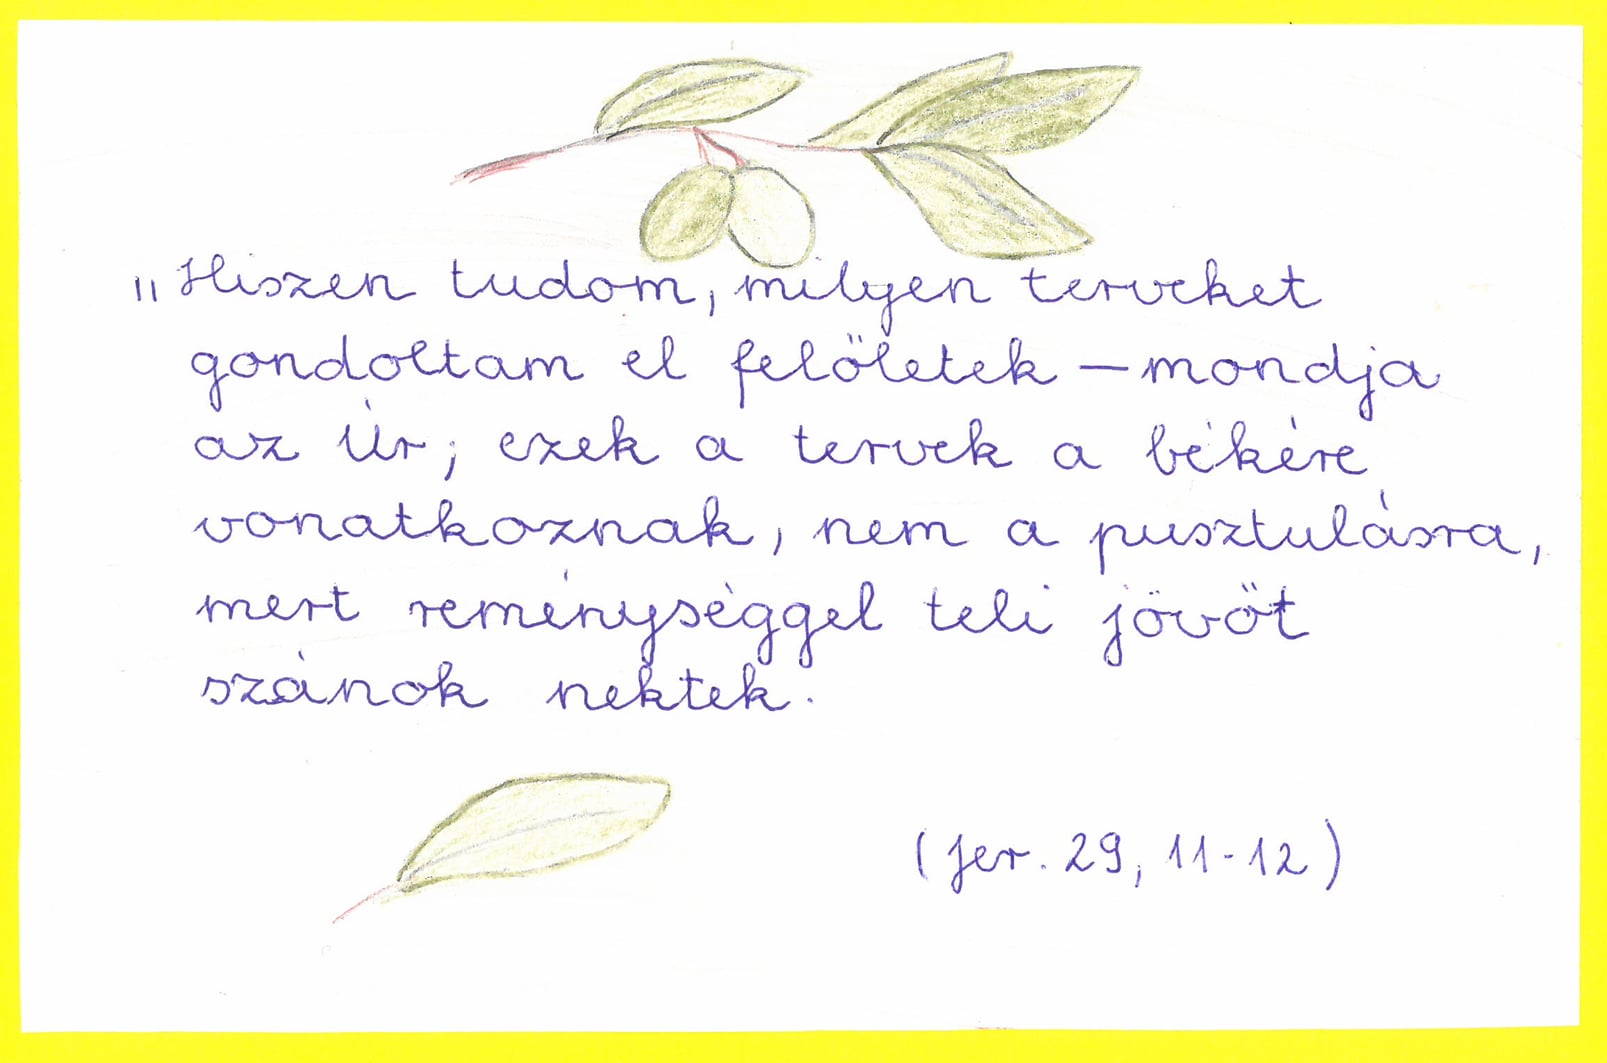 „Hiszen tudom, milyen terveket
gondoltam el felőletek – mondja
az Úr; ezek a tervek a békére
vonatkoznak, nem a pusztulásra,
mert reménységgel teli jövőt
szánok nektek.
(Jer. 29, 11-12)